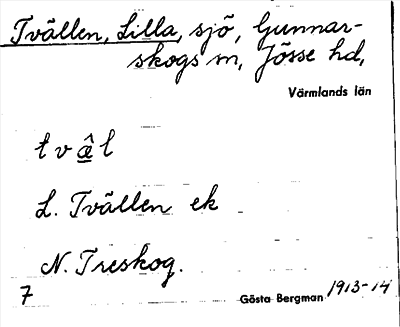 Tvällen, Lilla, sjö, Gunnar-
skogs sn, Jösse hd,
Värmlands län
tvâ̲l
L. Tvällen ek
N. Treskog.
7
Gösta Bergman 1913-14